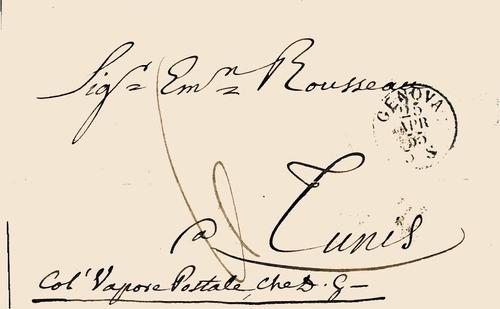 Sig.r Em.n Rousseau
GENOVA
25
APR
55
a Tunis
Col' Vapore Postale, che D. G—